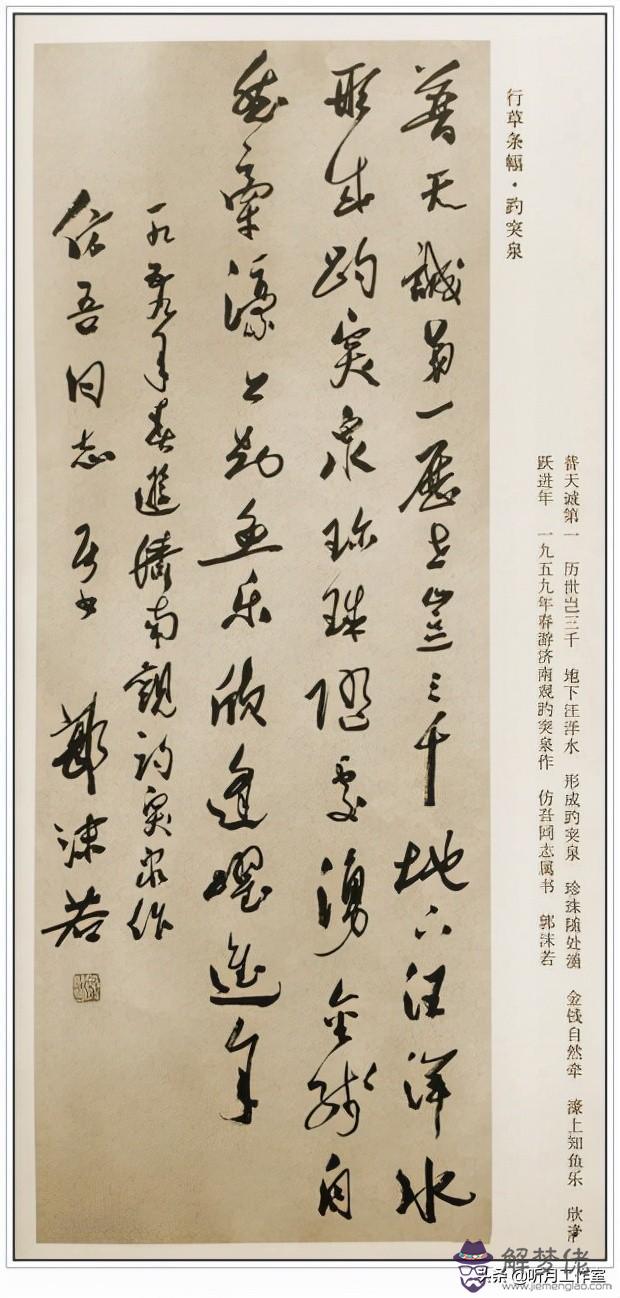 行草条幅·趵突泉
普天诚第一 历世岂三千 地下汪洋水 形成趵突泉 珍珠随处涌 金线自然牵 濠上知鱼乐 欣逢
跃进年 一九五九年春游济南观趵突泉作 仿吾同志属书 郭沫若
普天誠第一歷世豈三千地下汪洋水
形成趵突泉珍珠隨處湧金綫自
然牽濠上知魚樂欣逢躍進年
一九五九年春遊濟南觀趵突泉作
仿吾同志属书 郭沫若
解梦佬
头条 @听月工作室
www.jiemenglao.com